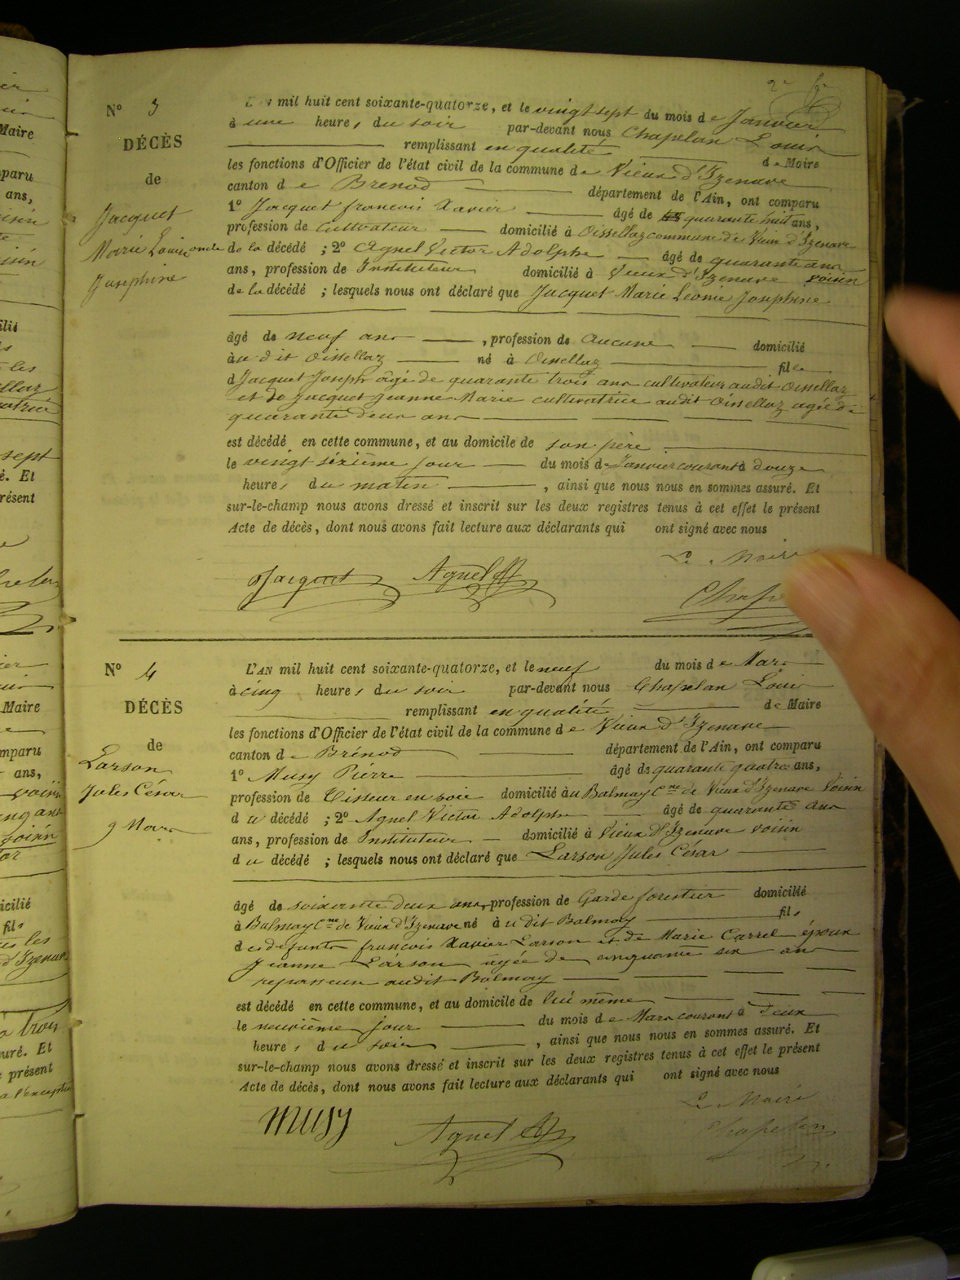 2e fe
N° 3
DÉCÈS
de
Jacquet
Marie Léonie
Josephine
L'AN mil huit cent soixante-quatorze, et le vingt sept du mois de Janvier
à une heure, du soir par-devant nous Chapelan Louis
remplissant en qualité de Maire
les fonctions d'Officier de l'état civil de la commune de Vieux d'Izenave
canton de Brenod département de l'Ain, ont comparu
1° Jacquet francois Xavier âgé de quarante huit ans,
profession de Cultivateur domicilié à Oisellaz commune de Vieux d'Izenave
oncle de la décédé ; 2° Agnel Victor Adolphe âgé de quarante ans
ans, profession de Instituteur domicilié à Vieux d'Izenave voisin
de la décédé ; lesquels nous ont déclaré que Jacquet Marie Léonie Josephine
âgé de neuf ans, profession de Aucune domicilié
à u dit Oissellaz né à Oissellaz fille
d Jacquet Joseph âgé de quarante trois ans cultivateur audit Oissellaz
et de Jacquet Jeanne Marie cultivatrice audit Oissellaz agée de
quarante deux ans
est décédé en cette commune, et au domicile de son père
le vingt sixième jour du mois de Janvier courant à douze
heures du matin, ainsi que nous nous en sommes assuré. Et
sur-le-champ nous avons dressé et inscrit sur les deux registres tenus à cet effet le présent
Acte de décès, dont nous avons fait lecture aux déclarants qui ont signé avec nous
Le Maire
Jacquet Agnel
N° 4
DÉCÈS
de
Larson
Jules César
9 Mars
L'AN mil huit cent soixante-quatorze, et le neuf du mois de Mars
à cinq heures du soir par-devant nous Chapelan Louis
remplissant en qualité de Maire
les fonctions d'Officier de l'état civil de la commune de Vieux d'Izenave
canton de Brénod département de l'Ain, ont comparu
1° Musy Pierre âgé de quarante quatre ans,
profession de Tisseur en soie domicilié au Balmay Cne de Vieux d'Izenave voisin
du décédé ; 2° Agnel Victor Adolphe âgé de quarante ans
ans, profession de Instituteur domicilié à Vieux d'Izenave voisin
du décédé ; lesquels nous ont déclaré que Larson Jules César
âgé de soixante deux ans, profession de Garde forestier domicilié
à Balmay Cne de Vieux d'Izenave né à u dit Balmay fils
d es defunts francois Xavier Larson et de Marie Carrel époux
Jeanne Larson agée de cinquante six ans
repasseur audit Balmay
est décédé en cette commune, et au domicile de lui même
le neuvième jour du mois de Mars courant à deux
heures du soir, ainsi que nous nous en sommes assuré. Et
sur-le-champ nous avons dressé et inscrit sur les deux registres tenus à cet effet le présent
Acte de décès, dont nous avons fait lecture aux déclarants qui ont signé avec nous
Le Maire
MUSY Agnel Chapelan